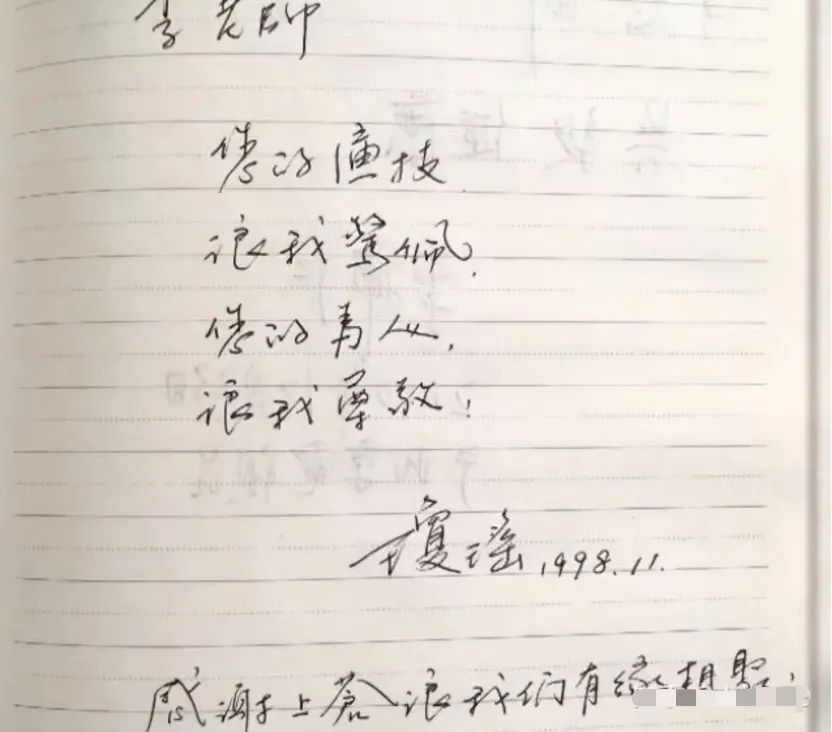 李老師
您的演技
讓我驚佩，
您的為人，
讓我尊敬！
瓊瑤 1998.11.
感謝上蒼讓我們有緣相聚，